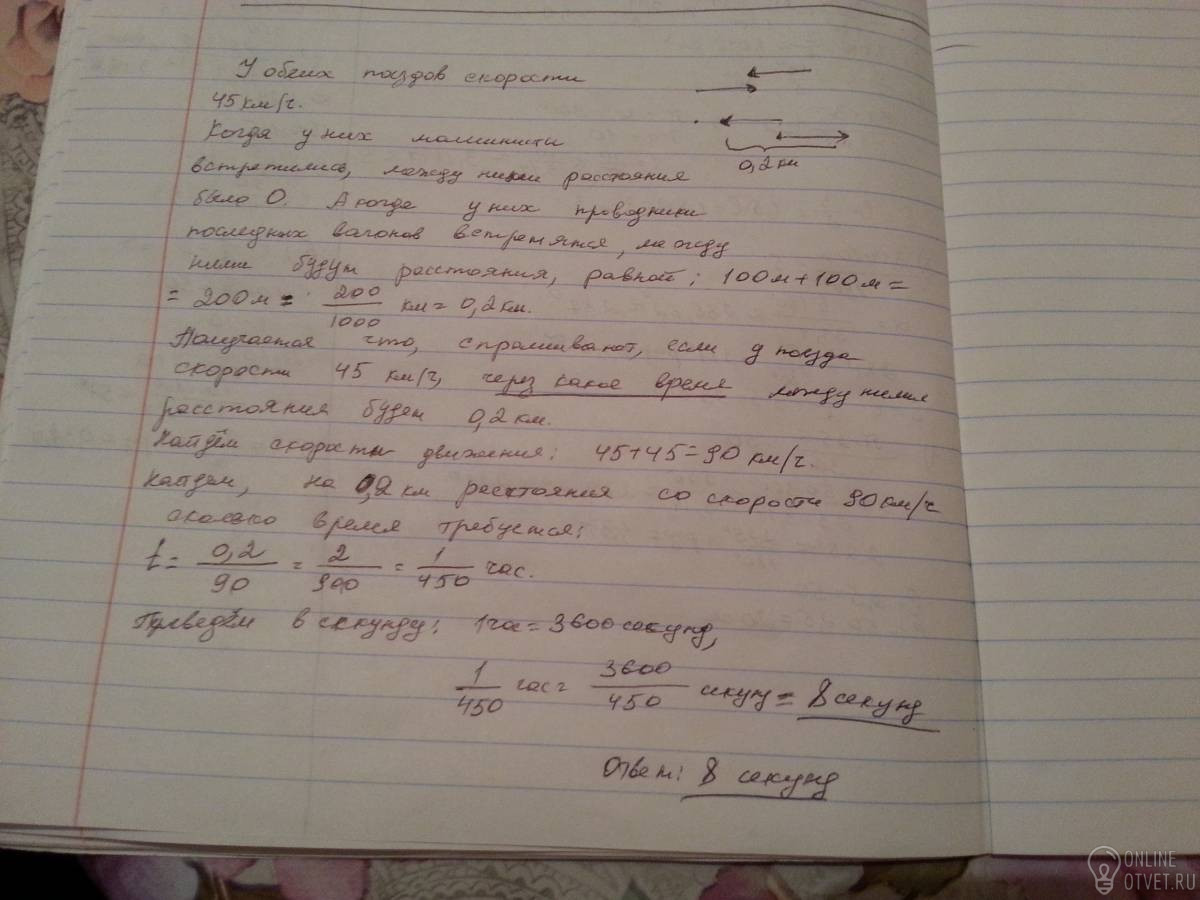 У обеих поездов скорости
45 км/ч.
Когда у них машинисты
встретились, между ними расстояния
было 0. А когда у них проводники
последних вагонов встретятся, между
ними будут расстояния, равной: 100м+100м=
= 200м = 200/1000 км = 0,2 км.
Получается что, спрашивают, если у поезда
скорости 45 км/ч, через какое время между ними
расстояния будет 0,2 км.
Найдём скорости движения: 45+45=90 км/ч.
Найдем, на 0,2 км расстояния со скорости 90 км/ч
сколько время требуется:
t = 0,2/90 = 2/900 = 1/450 час.
Приведём в секунду: 1час = 3600 секунд,
1/450 час = 3600/450 секунд = 8 секунд
Ответ: 8 секунд
0,2 км
ONLINE
OTVET.RU